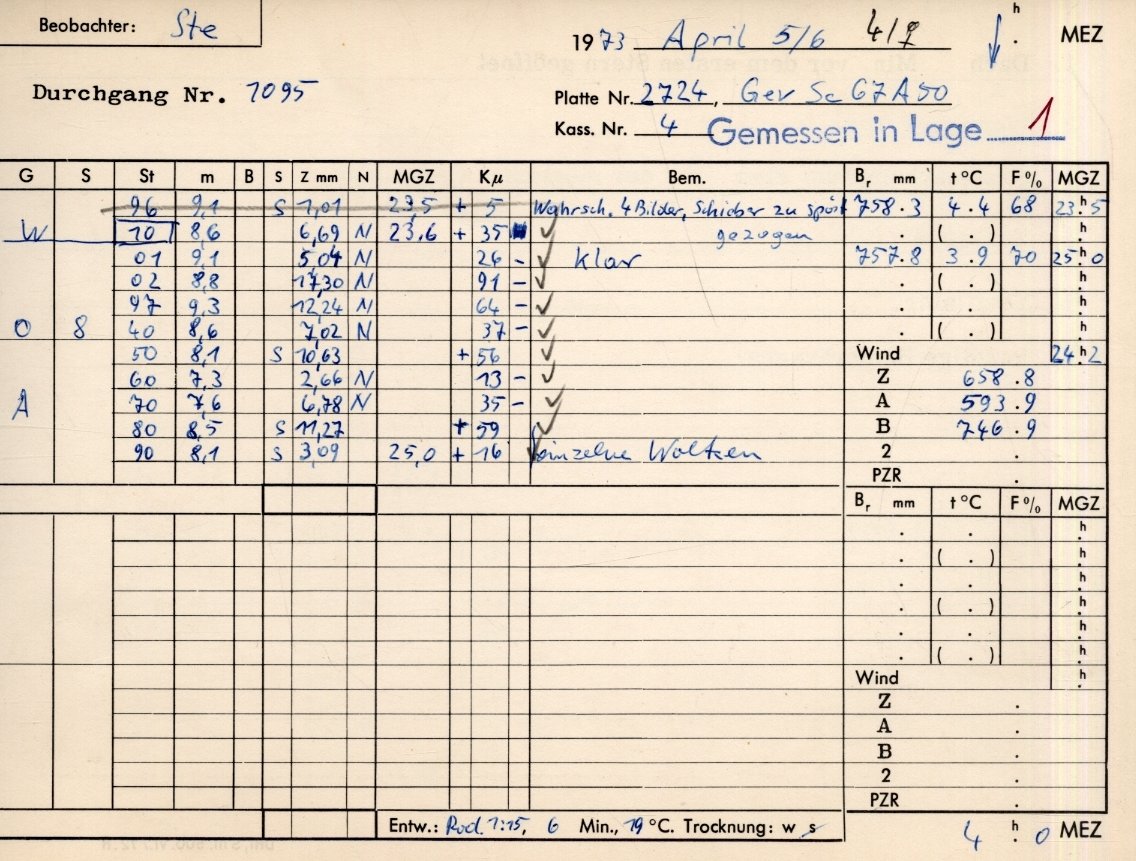 Beobachter: Ste
1973 April 5/6 h . MEZ
Durchgang Nr. 1095
Platte Nr. 2724, Gev Sc 67A50
Kass. Nr. 4 Gemessen in Lage 1
G S St m B S Z mm N MGZ Kμ Bem. Br mm t °C F % MGZ
96 9,1 S 1,01 23,5 + 5 Wahrsch. 4 Bilder, Schieber zu spät 758.3 4.4 68 23h5
W 10 8,6 6,69 N 23,6 + 35 gezogen . ( . ) h
01 9,1 5,04 N 26 - klar 757.8 3.9 70 25h0
02 8,8 17,30 N 91 - . ( . ) h
97 9,3 12,24 N 64 - . . h
O 8 40 8,6 7,02 N 37 - . ( . ) h
50 8,1 S 10,63 + 56 Wind 24h2
60 7,3 2,66 N 13 - Z 658.8
A 70 7,6 6,78 N 35 - A 593.9
80 8,5 S 11,27 + 59 B 746.9
90 8,1 S 3,09 25,0 + 16 einzelne Wolken 2 .
PZR .
Br mm t °C F % MGZ
. . h
. ( . ) h
. . h
. ( . ) h
. . h
. ( . ) h
Wind h
Z .
A .
B .
2 .
PZR .
Entw.: Rod. 1:15, 6 Min., 19 °C. Trocknung: w s 4 h 0 MEZ